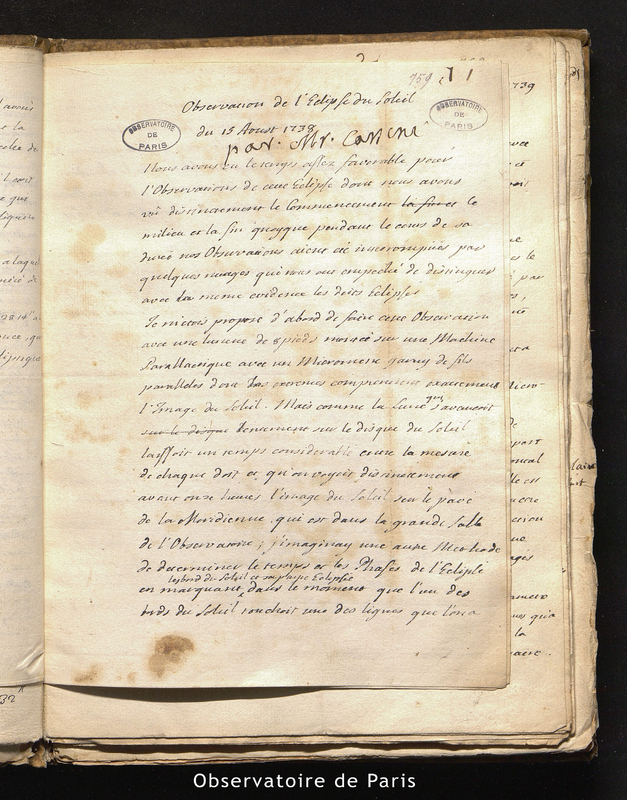 Observation de l'Eclipse du Soleil
du 15 Aoust 1738
par Mr. Cassini
OBSERVATOIRE DE PARIS
OBSERVATOIRE DE PARIS
Nous avons eu le temps assez favorable pour
l'Observations de cette Eclipse dont nous avons
vû distinctement le Commencement la fin et le
milieu et la fin quoyque pendant le cours de sa
durée nos Observations aient été interrompues par
quelques nuages qui nous ont empeché de distinguer
avec la meme evidence les doits Eclipsés
Je m'etois proposé d'abord de faire cette Observation
avec une lunette de 8 pieds montée sur une Machine
Parallactique avec un Micrometre garny de fils
paralleles dont les extremes comprenoient exactement
l'Image du Soleil. Mais comme la Lune qui s'avancoit
sur le disque lentement sur le disque du Soleil
laissoit un temps considerable entre la mesure
de chaque doit et qu'on voyoit distinctement
avant onze heures l'image du Soleil sur le pavé
de la Meridienne qui est dans la grande Salle
de l'Observatoire; j'imaginay une autre Methode
de determiner le temps et les Phases de l'Eclipse
les bord du Soleil et sa partie Eclipsée
en marquant dans le moment que l'un des
bords du Soleil touchoit une des lignes que l'on a
1739
Observatoire de Paris